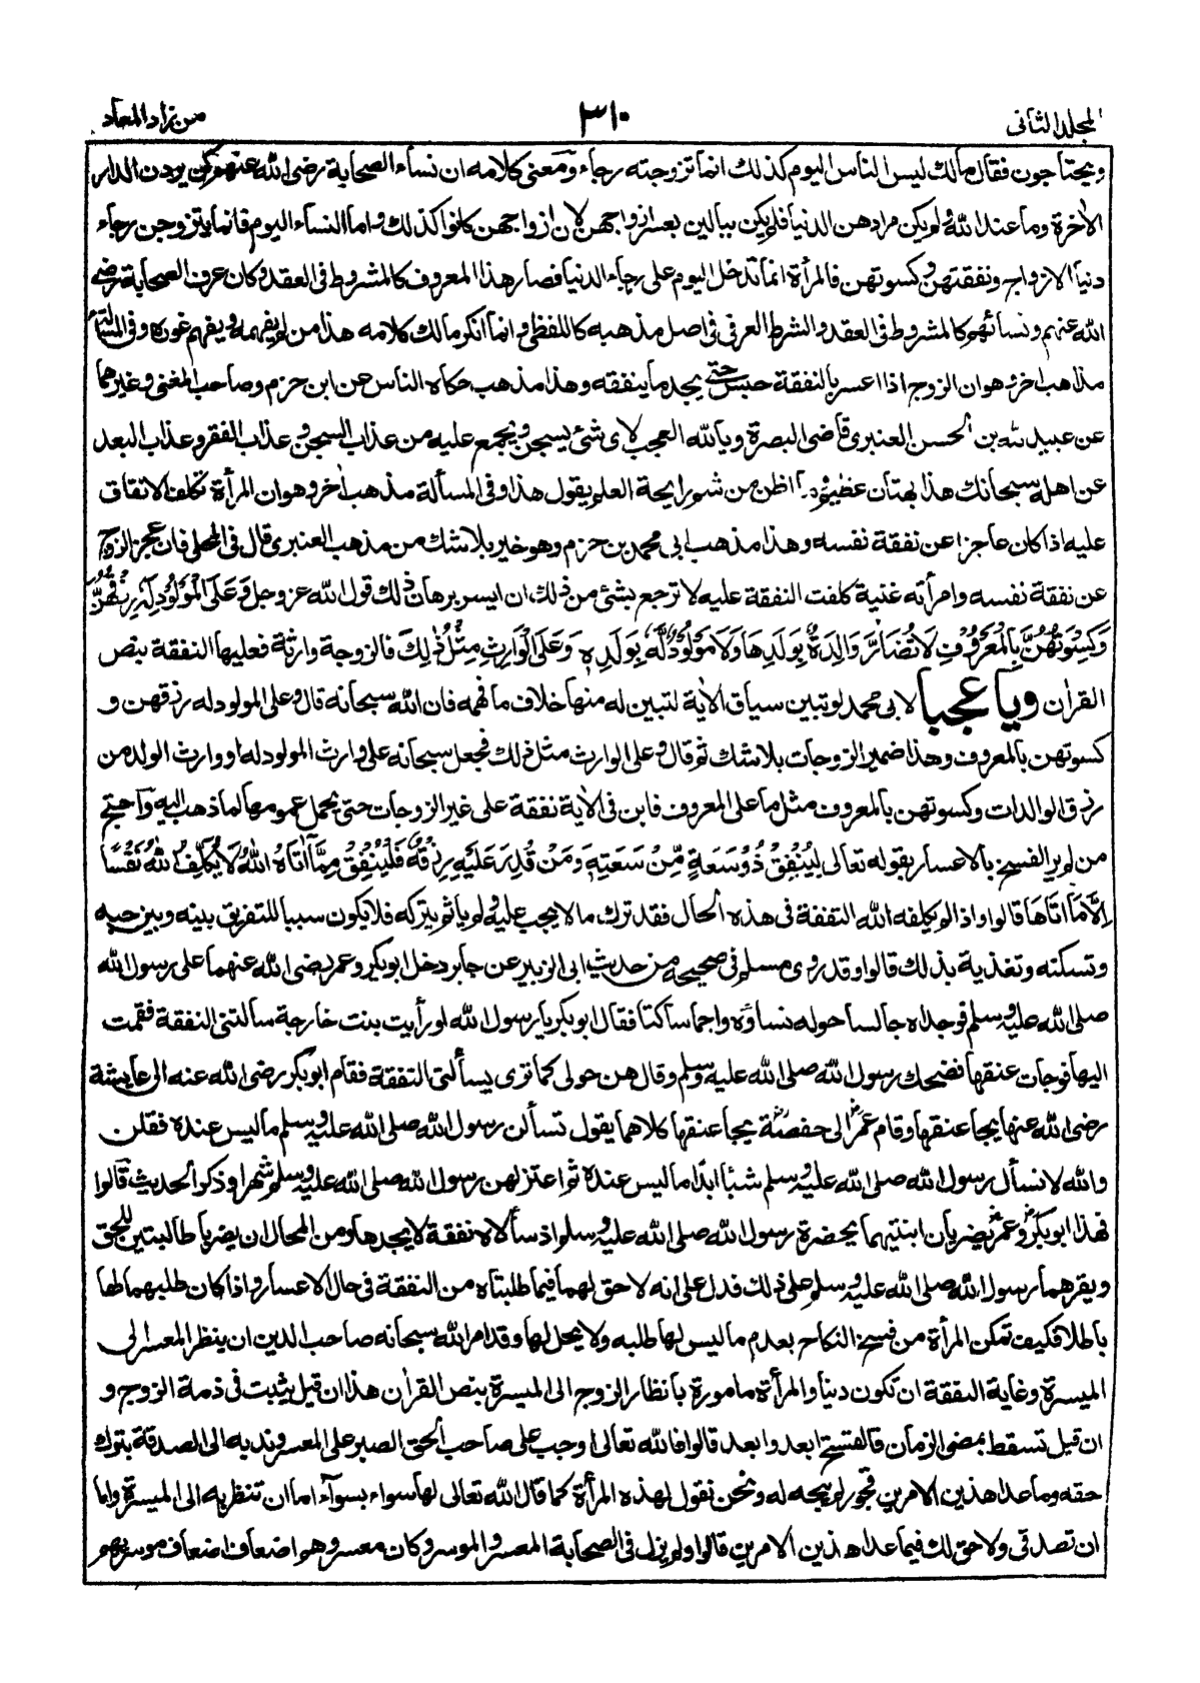 المجلد الثانى
٣١٠
من زاد المعاد
ويحتاجون فقال مالك ليس الناس اليوم كذلك انما تزوجته رجاء ومعنى كلامه ان نساء الصحابة رضى الله عنهم كن يردن الدار
الاٰخرة وما عند الله ولم يكن مرادهن الدنيا فلم يكن يبالين بعسر ازواجهن لان ازواجهن كانوا كذلك واما النساء اليوم فانما يتزوجن رجاء
دنيا الازواج ونفقتهن وكسوتهن فالمرأة انما تدخل اليوم على رجاء الدنيا فصار هذا المعروف كالمشروط فى العقد وكان عرف الصحابة رضى
الله عنهم ونسائهم كالمشروط فى العقد والشرط العرفى فى اصل مذهبه كاللفظى وانما انكر مالك كلامه هذا من لم يفهمه ويفهم غوره وفى المسألة
مذاهب اخر هو ان الزوج اذا اعسر بالنفقة حبس حتى يجد ما ينفقه وهذا مذهب حكاه الناس عن ابن حزم وصاحب المغنى وغيرهما
عن عبيد الله بن الحسن العنبرى قاضى البصرة ويا لله العجب لاى شئ يسجن ويجمع عليه من عذاب السجن وعذاب الفقر وعذاب البعد
عن اهله سبحانك هذا بهتان عظيم وما اظن من شم رايحة العلم يقول هذا وفى المسألة مذهب اٰخر وهو ان المرأة تكلف الانفاق
عليه اذا كان عاجزا عن نفقة نفسه وهذا مذهب ابى محمد بن حزم وهو خير بلا شك من مذهب العنبرى قال فى المحلى فان عجز الزوج
عن نفقة نفسه وامرأته غنية كلفت النفقة عليه لا ترجع بشئ من ذلك ان ايسر برهان ذلك قول الله عز وجل وَعَلَى الْمَوْلُوْدِ لَهٗ رِزْقُهُنَّ
وَكِسْوَتُهُنَّ بِالْمَعْرُوْفِ لَا تُضَآرَّ وَالِدَةٌ بِوَلَدِهَا وَلَا مَوْلُوْدٌ لَّهٗ بِوَلَدِهٖ وَعَلَى الْوَارِثِ مِثْلُ ذٰلِكَ فالزوجة وارثة فعليها النفقة بنص
القراٰن ويا عجبا لابى محمد لو تبين سياق الاٰية لتبين له منها خلاف ما فهمه فان الله سبحانه قال وعلى المولود له رزقهن و
كسوتهن بالمعروف وهذا ضمير الزوجات بلا شك ثم قال وعلى الوارث مثل ذلك فجعل سبحانه على وارث المولود له او وارث الولد من
رزق الوالدات وكسوتهن بالمعروف مثل ما على المعروف فاين فى الاٰية نفقة على غير الزوجات حتى يحمل عمومها لما ذهب اليه واحتج
من لم ير الفسخ بالاعسار بقوله تعالى لِيُنْفِقْ ذُوْ سَعَةٍ مِّنْ سَعَتِهٖ وَمَنْ قُدِرَ عَلَيْهِ رِزْقُهٗ فَلْيُنْفِقْ مِمَّآ اٰتَاهُ اللّٰهُ لَا يُكَلِّفُ اللّٰهُ نَفْسًا
اِلَّا مَآ اٰتَاهَا قالوا واذا لم يكلفه الله النفقة فى هذه الحال فقد ترك ما لا يجب عليه ولم ياثم بتركه فلا يكون سببا للتفريق بينه وبين حبه
وتسكنه وتغذية بذلك قالوا وقد روى مسلم فى صحيحه من حديث ابى الزبير عن جابر دخل ابوبكر وعمر رضى الله عنهما على رسول الله
صلى الله عليه وسلم فوجداه جالسا حوله نساؤه واجما ساكتا فقال ابوبكر يا رسول الله لو رأيت بنت خارجة سالتنى النفقة فقمت
اليها فوجات عنقها فضحك رسول الله صلى الله عليه وسلم وقال هن حولى كما ترى يسألننى النفقة فقام ابوبكر رضى الله عنه الى عايشة
رضى الله عنها يجا عنقها وقام عمر الى حفصة يجا عنقها كلاهما يقول تسألن رسول الله صلى الله عليه وسلم ما ليس عنده فقلن
والله لا نسأل رسول الله صلى الله عليه وسلم شيئا ابدا ما ليس عنده ثم اعتزلهن رسول الله صلى الله عليه وسلم شهرا وذكر الحديث قالوا
فهذا ابوبكر وعمر يضربان ابنتيهما بحضرة رسول الله صلى الله عليه وسلم اذ سألاه نفقة لا يجدها ومن المحال ان يضربا طالبتين للحق
ويقرهما رسول الله صلى الله عليه وسلم على ذلك فدل على انه لا حق لهما فيما طلبتاه من النفقة فى حال الاعسار واذا كان طلبهما لها
باطلا فكيف تمكن المرأة من فسخ النكاح بعدم ما ليس لها طلبه ولا يحل لها وقد امر الله سبحانه صاحب الدين ان ينظر المعسر الى
الميسرة وغاية النفقة ان تكون دينا والمرأة مامورة بانظار الزوج الى الميسرة بنص القراٰن هذا ان قيل يثبت فى ذمة الزوج و
ان قيل تسقط بمضى الزمان فالفسخ ابعد وابعد قالوا فالله تعالى اوجب على صاحب الحق الصبر على المعسر وندبه الى الصدقة بترك
حقه وما عدا هذين الامرين فجور لم يبحه له ونحن نقول لهذه المرأة كما قال الله تعالى لها سواء بسوآء اما ان تنظريه الى الميسرة واما
ان تصدقى ولا حق لك فيما عدا هذين الامرين قالوا ولم يزل فى الصحابة المعسر والموسر وكان معسروهم اضعاف اضعاف موسريهم